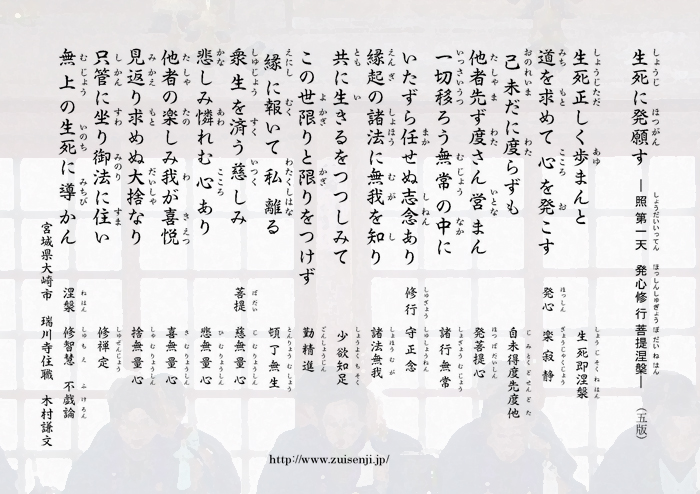 生死に発願す ―照 第一天 発心修行菩提涅槃― (五版)
生死正しく歩まんと 生死即涅槃
道を求めて心を発こす 発心 楽寂静
己未だに度らずも 自未得度先度他
他者先ず度さん営まん 発菩提心
一切移ろう無常の中に 諸行無常
いたずら任せぬ志念あり 修行 守正念
縁起の諸法に無我を知り 諸法無我
共に生きるをつつしみて 少欲知足
この世限りと限りをつけず 勤精進
縁に報いて私離る 領了無生
衆生を済う慈しみ 菩提 慈無量心
悲しみ憐れむ心あり 悲無量心
他者の楽しみ我が喜悦 喜無量心
見返り求めぬ大捨なり 捨無量心
只管に坐り御法に住い 修禅定
無上の生死に導かん 涅槃 修智慧 不戯論
宮城県大崎市 瑞川寺住職 木村謙文
http://www.zuisenji.jp/